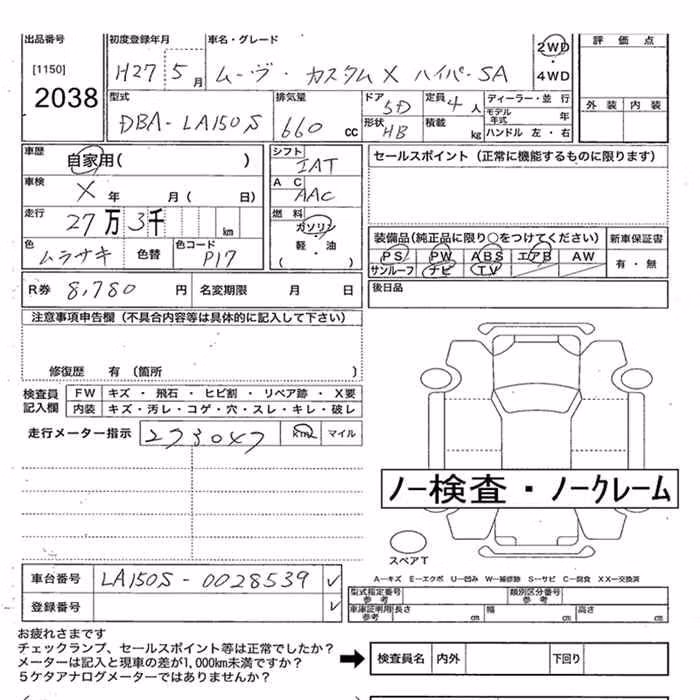 出品番号 初度登録年月 車名・グレード 評価点
[1150] H27 5月 ムーヴ・カスタムX ハイパーSA 2WD・4WD
2038
型式 排気量 ドア 5D 定員 4人 ディーラー・並行 外装 内装
DBA-LA150S 660cc 形状 HB 積載 kg モデル年式 年
ハンドル 左・右
車歴 自家用( ) シフト IAT セールスポイント (正常に機能するものに限ります)
車検 X年 月( 日) AC AAC
走行 27万3千 km 燃料 ガソリン・軽・油
装備品(純正品に限り○をつけてください) 新車保証書
色 ムラサキ 色替 色コード P17 PS PW ABS エアB AW 有・無
サンルーフ ナビ TV
R券 8,780円 名変期限 月 日 後日品
注意事項申告欄 (不具合内容等は具体的に記入して下さい)
修復歴 有 (箇所 )
検査員記入欄 FW キズ・飛石・ヒビ割・リペア跡・X要
内装 キズ・汚レ・コゲ・穴・スレ・キレ・破レ
走行メーター指示 273047 km マイル
ノー検査・ノークレーム
スペアT
車台番号 LA150S-0028539 ✓
A―キズ E―エクボ U―凹み W―補修跡 S―サビ C―腐食 XX―交換済
登録番号 ✓ 型式指定番号 参考 類別区分番号 参考
車庫証明用 参考 長さ cm 幅 cm 高さ cm
お疲れさまです
チェックランプ、セールスポイント等は正常でしたか?
メーターは記入と現車の差が1,000km未満ですか? ➡ 検査員名 内外 下回り
5ケタアナログメーターではありませんか?